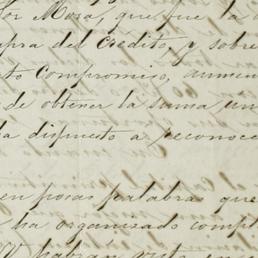 or Mora, que fue la
pra del Crédito, y sobre
to compromiso, aumen
de obtener la suma un
ha dispuesto a reconoce
en pocas palabras que
ha organizado compl
V habrán visto